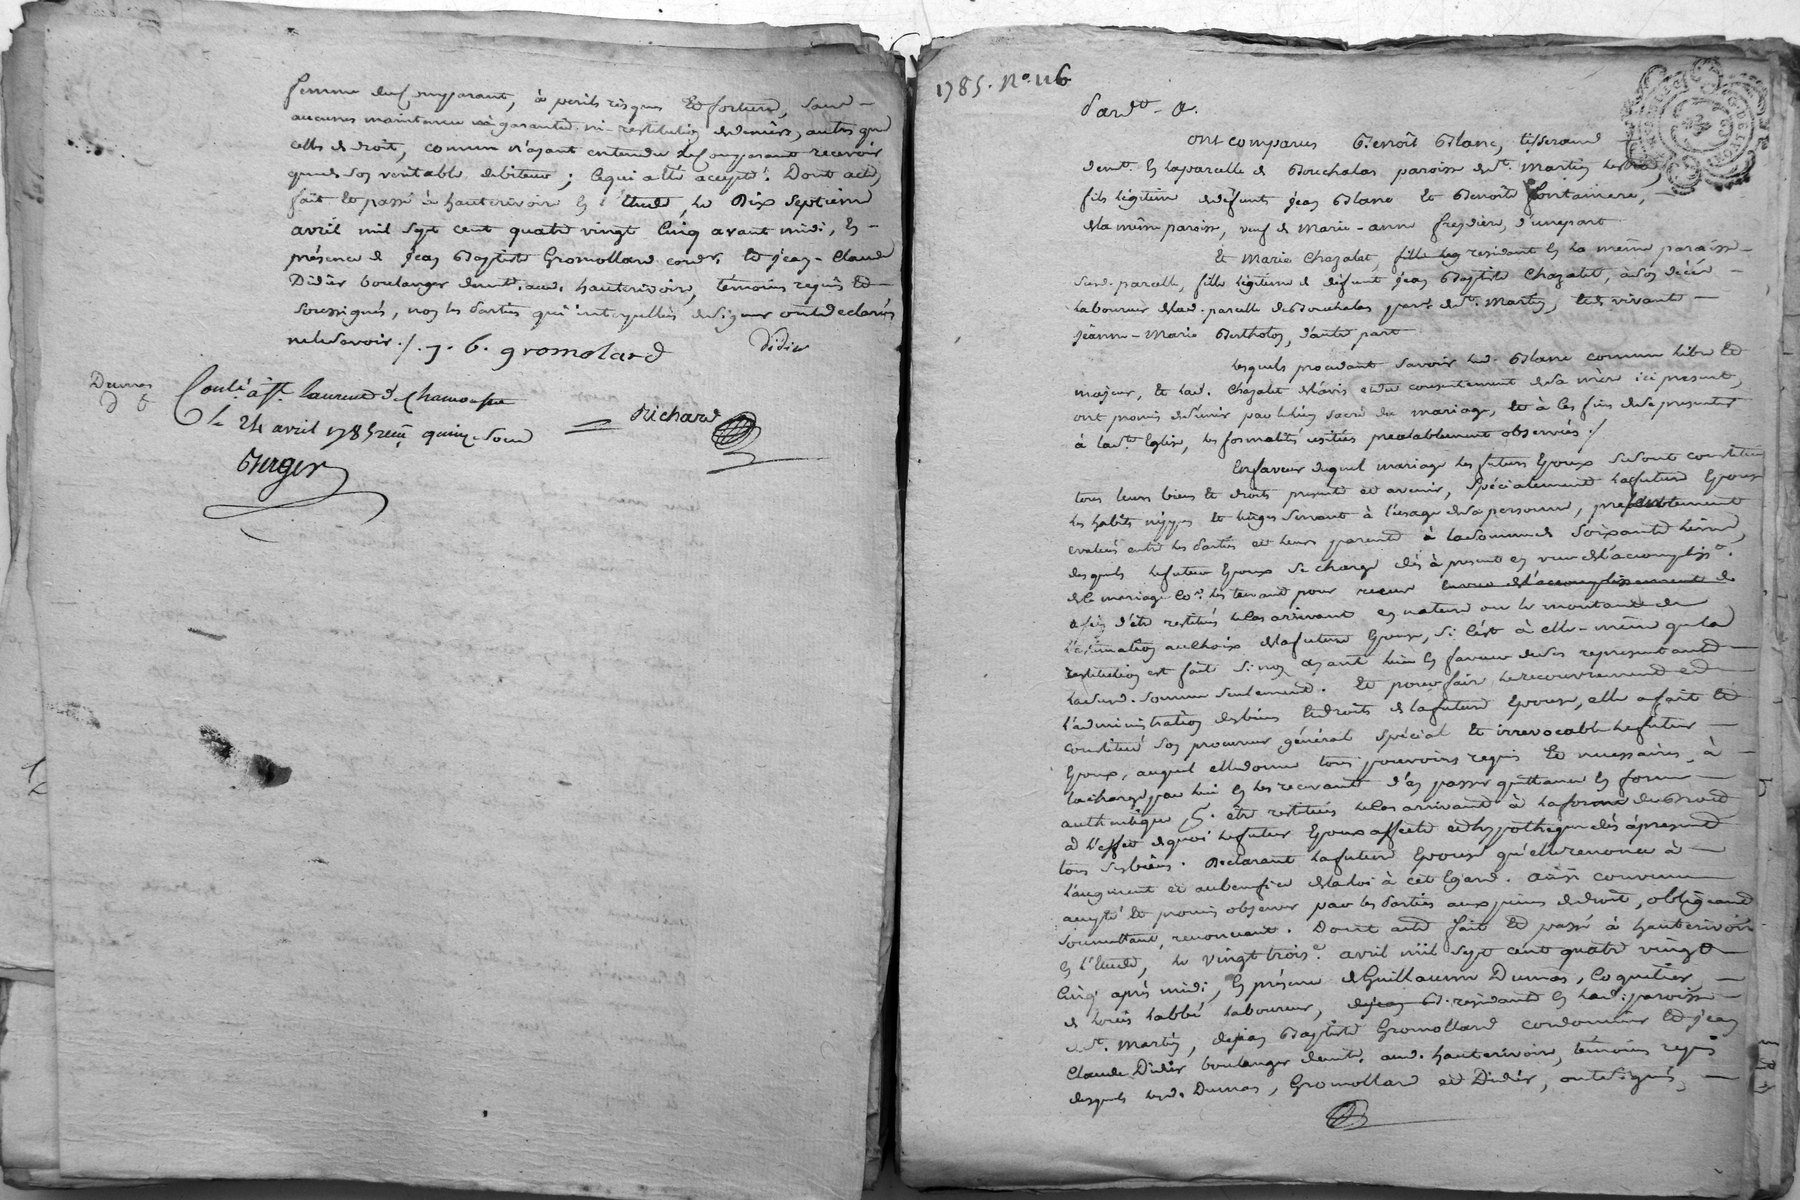 femme du Comparant, à perils risques Et fortune, sans
aucunes maintenue ni garantie ni restitution de deniers, autres que
celles de droit, comm n'ayant entendu le Comparant recevoir
que de son véritable debiteur; Ce qui a été accepté. Dont acte,
fait Et passé à hauterivoire En l'Etude, le Dix Septieme
avril mil Sept Cent quatre vingt Cinq avant midi, En
présence de Jean Baptiste Gromollard cordr. Et Jean-Claude
Didier boulanger demt. aud. hauterivoire, témoins requis Et
soussignés, non les parties qui interpellées de Signer ont declarés
ne le savoir ./. J. B. gromolard Didier
Dumas
Conlé. à St. laurent d Chamousset
Le 24 avril 1785 reçu quinze sous = Richard
Berger
1785. No. 116
Pardt. &.
ont comparus Benoît Blanc, tisserand
demt. En la parcelle de Bouchalas paroisse de St. Martin
fils légitime de défunts Jean Blanc Et Benoite fontaniere,
de la même paroisse, veuf de Marie-anne d'une part
Et Marie Chazalet, fille leg residant En la même paroisse
Susd. parcelle, fille légitime de défunt Jean Baptiste Chazalet, à son décès
laboureur de lad. parcelle de Bouchalas parr. de St. Martin, Et de vivante
Jeanne-Marie Bertholon, d'autre part
Lesquels procedant Savoir led. Blanc comme libre Et
majeur, Et lad. Chazalet de l'avis et du consentement de sa mère ici presente,
ont promis de s'unir par le lien sacré du mariage, Et à ces fins de se presenter
à la Ste. Eglise, les formalités usitées prealablement observées ./.
En faveur duquel mariage les futurs Epoux se sont constitués
tous leurs biens Et droits presents et avenir, Spécialement la future Epouse
les habits nippes Et linges servant à l'usage de sa personne,
evalués entre les Parties et leurs parents à la somme de Soixante livres,
desquels le futur Epoux Se charge dès à present en vue de l'accomplisst.
de ce mariage les tenant pour reçus En vue de l'accomplissement de
afin d'être restitués le cas arrivant en nature ou le montant de
l'estimation au choix de la future Epouse, Si c'est à elle-même que la
restitution est faite Sinon ayant lieu En faveur de ses representants
lad. Somme seulement. Et pour faire le recouvrement et
l'administration des biens Et droits de la future Epouse, elle a fait Et
constitué son procureur général Spécial Et irrevocable le futur
Epoux, auquel elle donne tous pouvoirs requis Et necessaires, à
la charge par lui En les recevant d'en passer quittance En forme
authentique pr. être restitués le cas arrivant à la forme du Droit
à l'effet de quoi le futur Epoux affecte et hypothèque dès à present
tous ses biens. Declarant la future Epouse qu'elle renonce à
l'augment et au benefice de la loi à cet Egard. ainsi convenu
accepté Et promis observer par les Parties aux peines de droit, obligeant
soumettant, renonceant. Dont acte fait Et passé à hauterivoire
En l'Etude, le vingt trois e. avril mil Sept cent quatre vingt
Cinq après midi, En présence de Guillaume Dumas, Coquetier,
de Louis labbé laboureur, de Jean B. residants En lad. paroisse
de St. Martin, de Jean Baptiste Gromollard cordonnier Et Jean
Claude Didier boulanger demt. aud. hauterivoire, témoins requis
desquels led. Dumas, Gromollard et Didier, ont Signés,